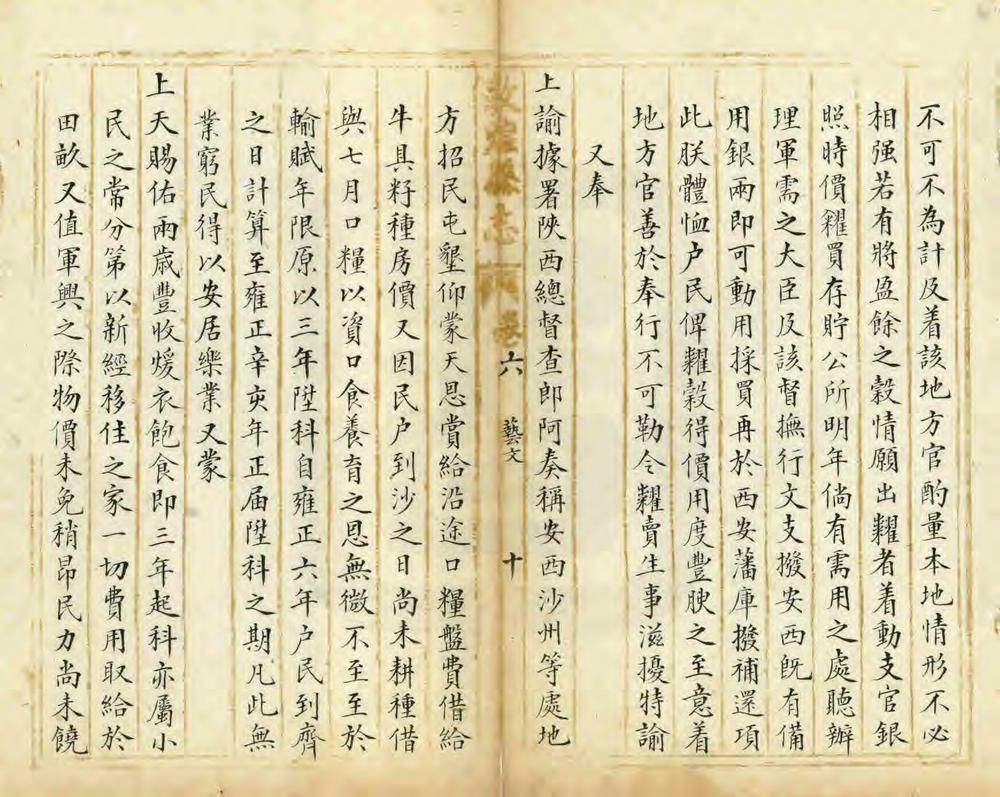 不可不為計及着該地方官酌量本地情形不必
相强若有將盈餘之穀情願出糶者着動支官銀
照時價糴買存貯公所明年倘有需用之處聽辦
理軍需之大臣及該督撫行文支撥安西既有備
用銀兩即可動用採買再於西安藩庫撥補還項
此朕體恤户民俾糶穀得價用度豐腴之至意着
地方官善於奉行不可勒令糶賣生事滋擾特諭
又奉
上諭據署陜西總督查郎阿奏稱安西沙州等處地
敦煌縣志 卷六 藝文 十
方招民屯墾仰蒙天恩賞給沿途口糧盤費借給
牛具籽種房價又因民户到沙之日尚未耕種借
與七月口糧以資口食養育之恩無微不至至於
輸賦年限原以三年陞科自雍正六年户民到齊
之日計算至雍正辛亥年正届陞科之期凡此無
業窮民得以安居樂業又蒙
上天賜佑兩歲豐收煖衣飽食即三年起科亦屬小
民之常分第以新經移住之家一切費用取給於
田畝又值軍興之際物價未免稍昂民力尚未饒